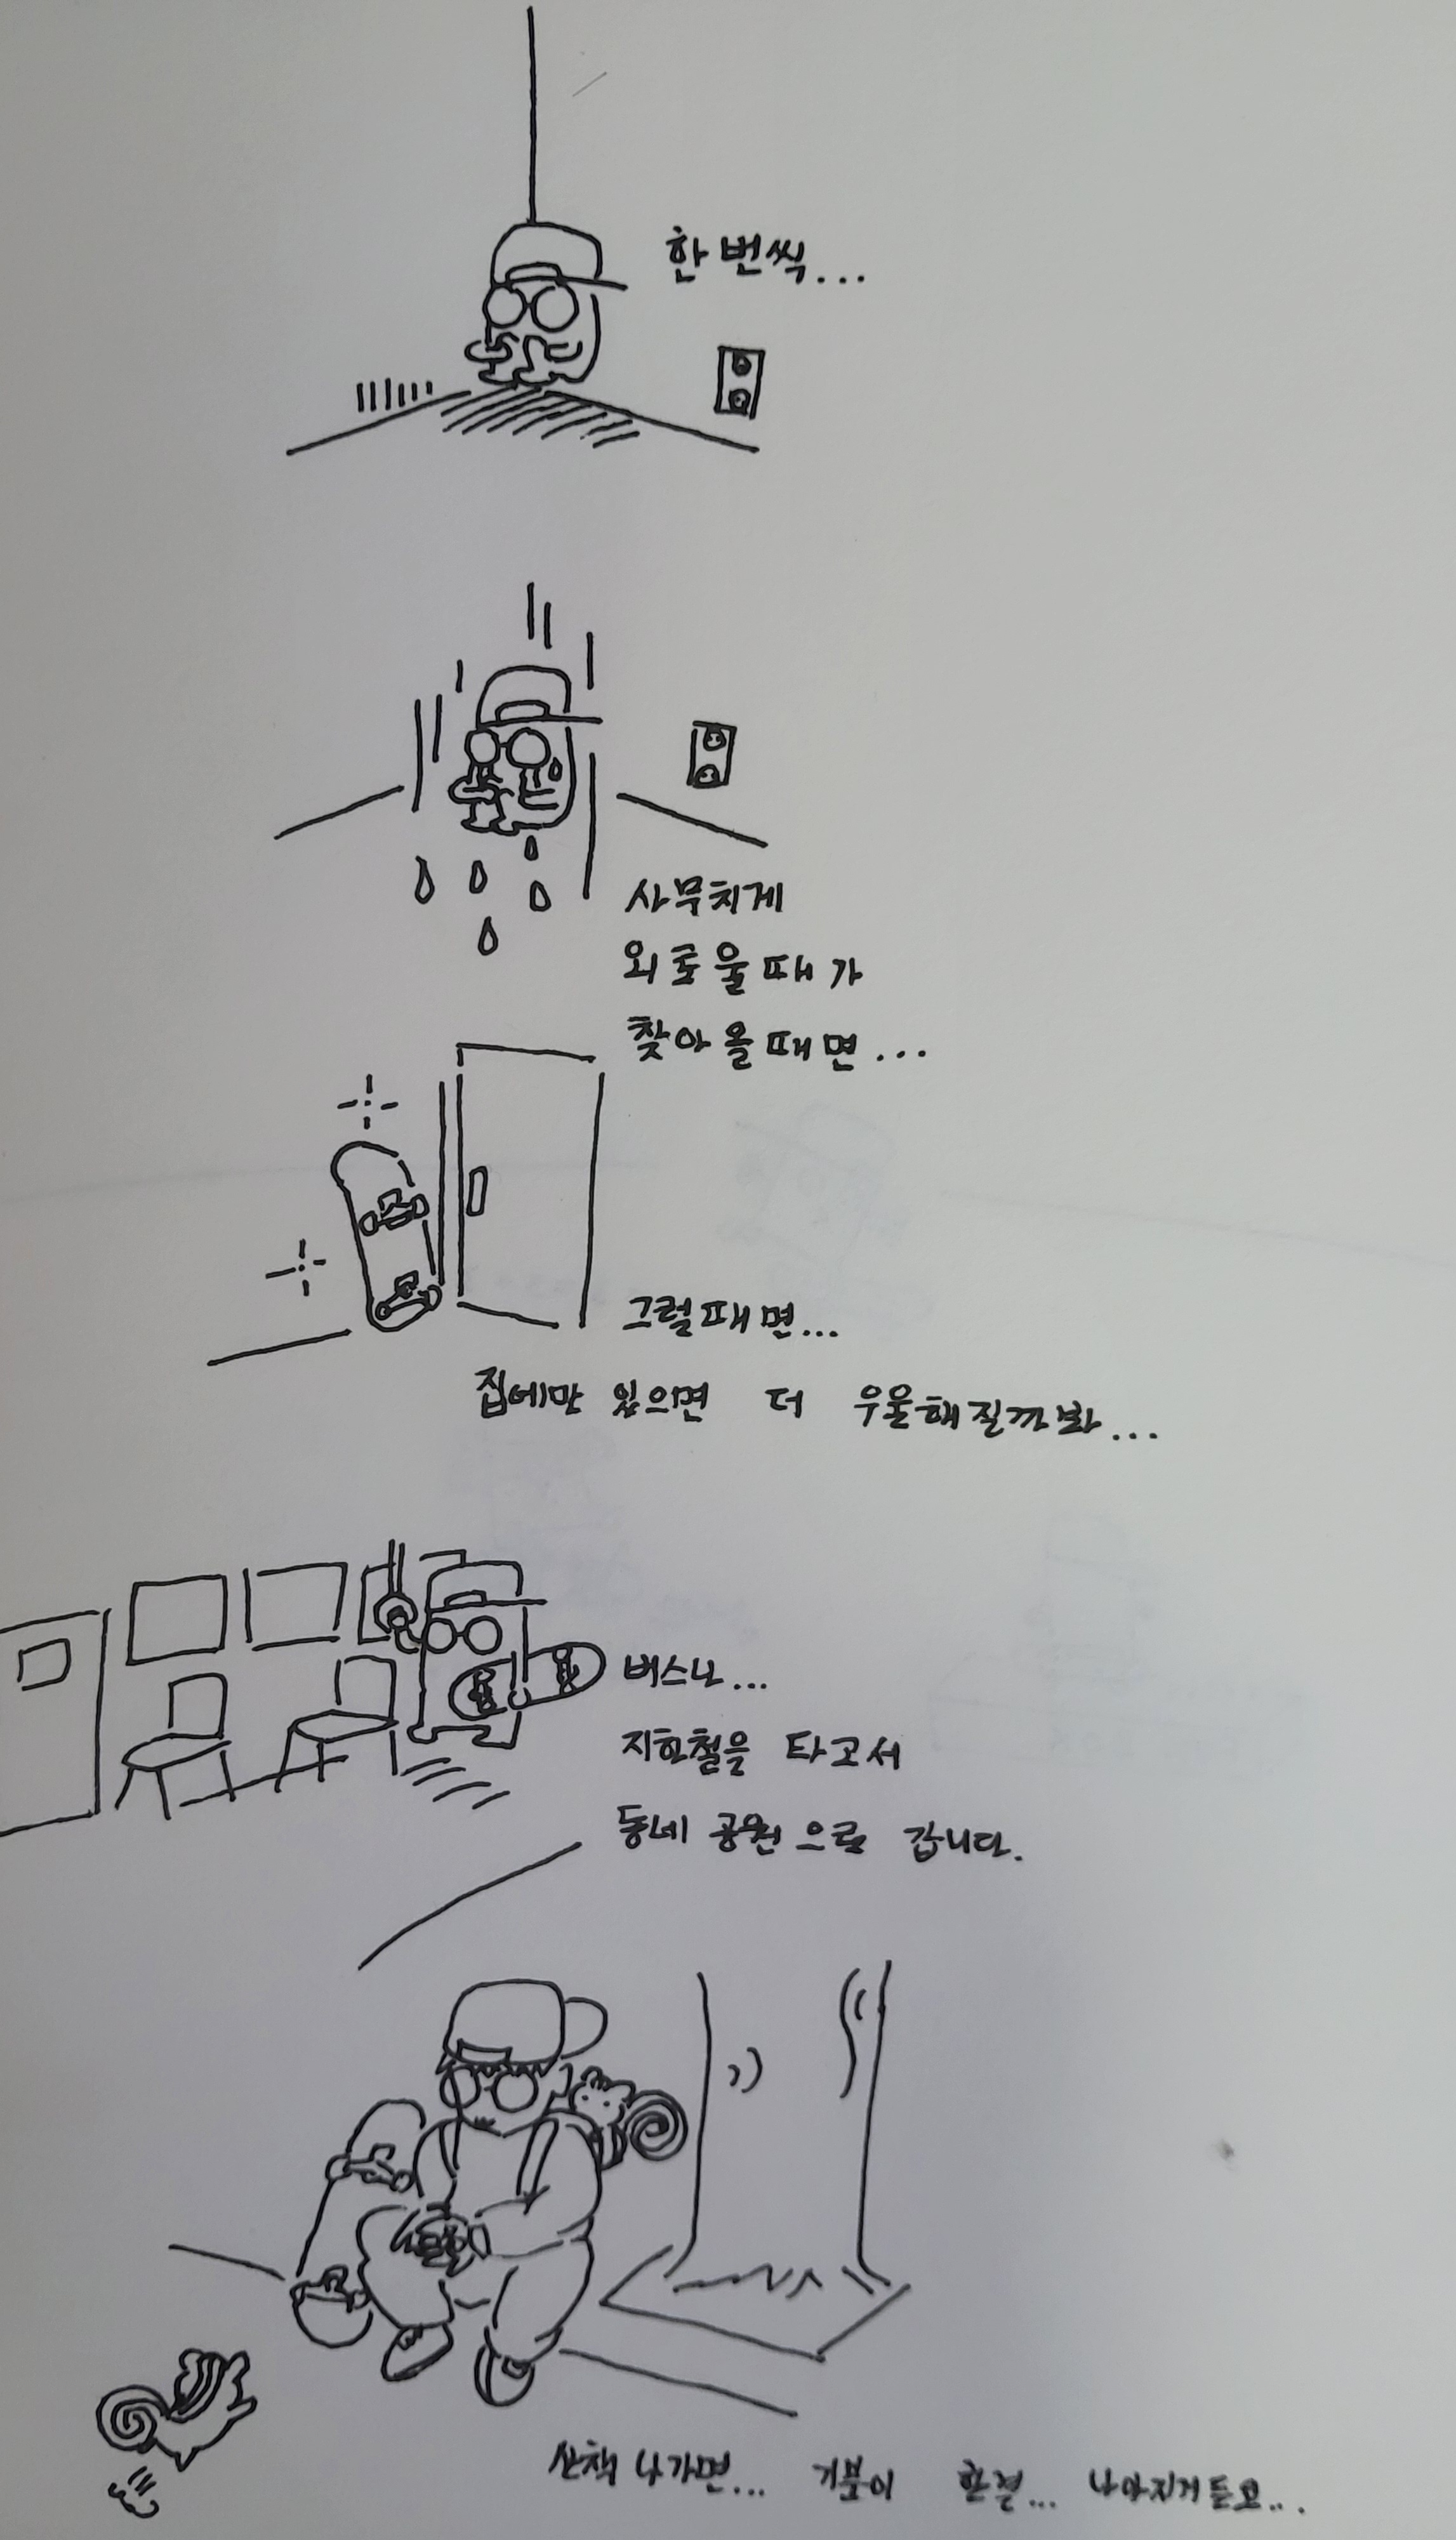 한번씩...
사무치게
외로울때가
찾아올때면...
그럴때면...
집에만 있으면 더 우울해질까봐...
버스나...
지하철을 타고서
동네 공원으로 갑니다.
산책 나가면... 기분이 한결... 나아지거든요...